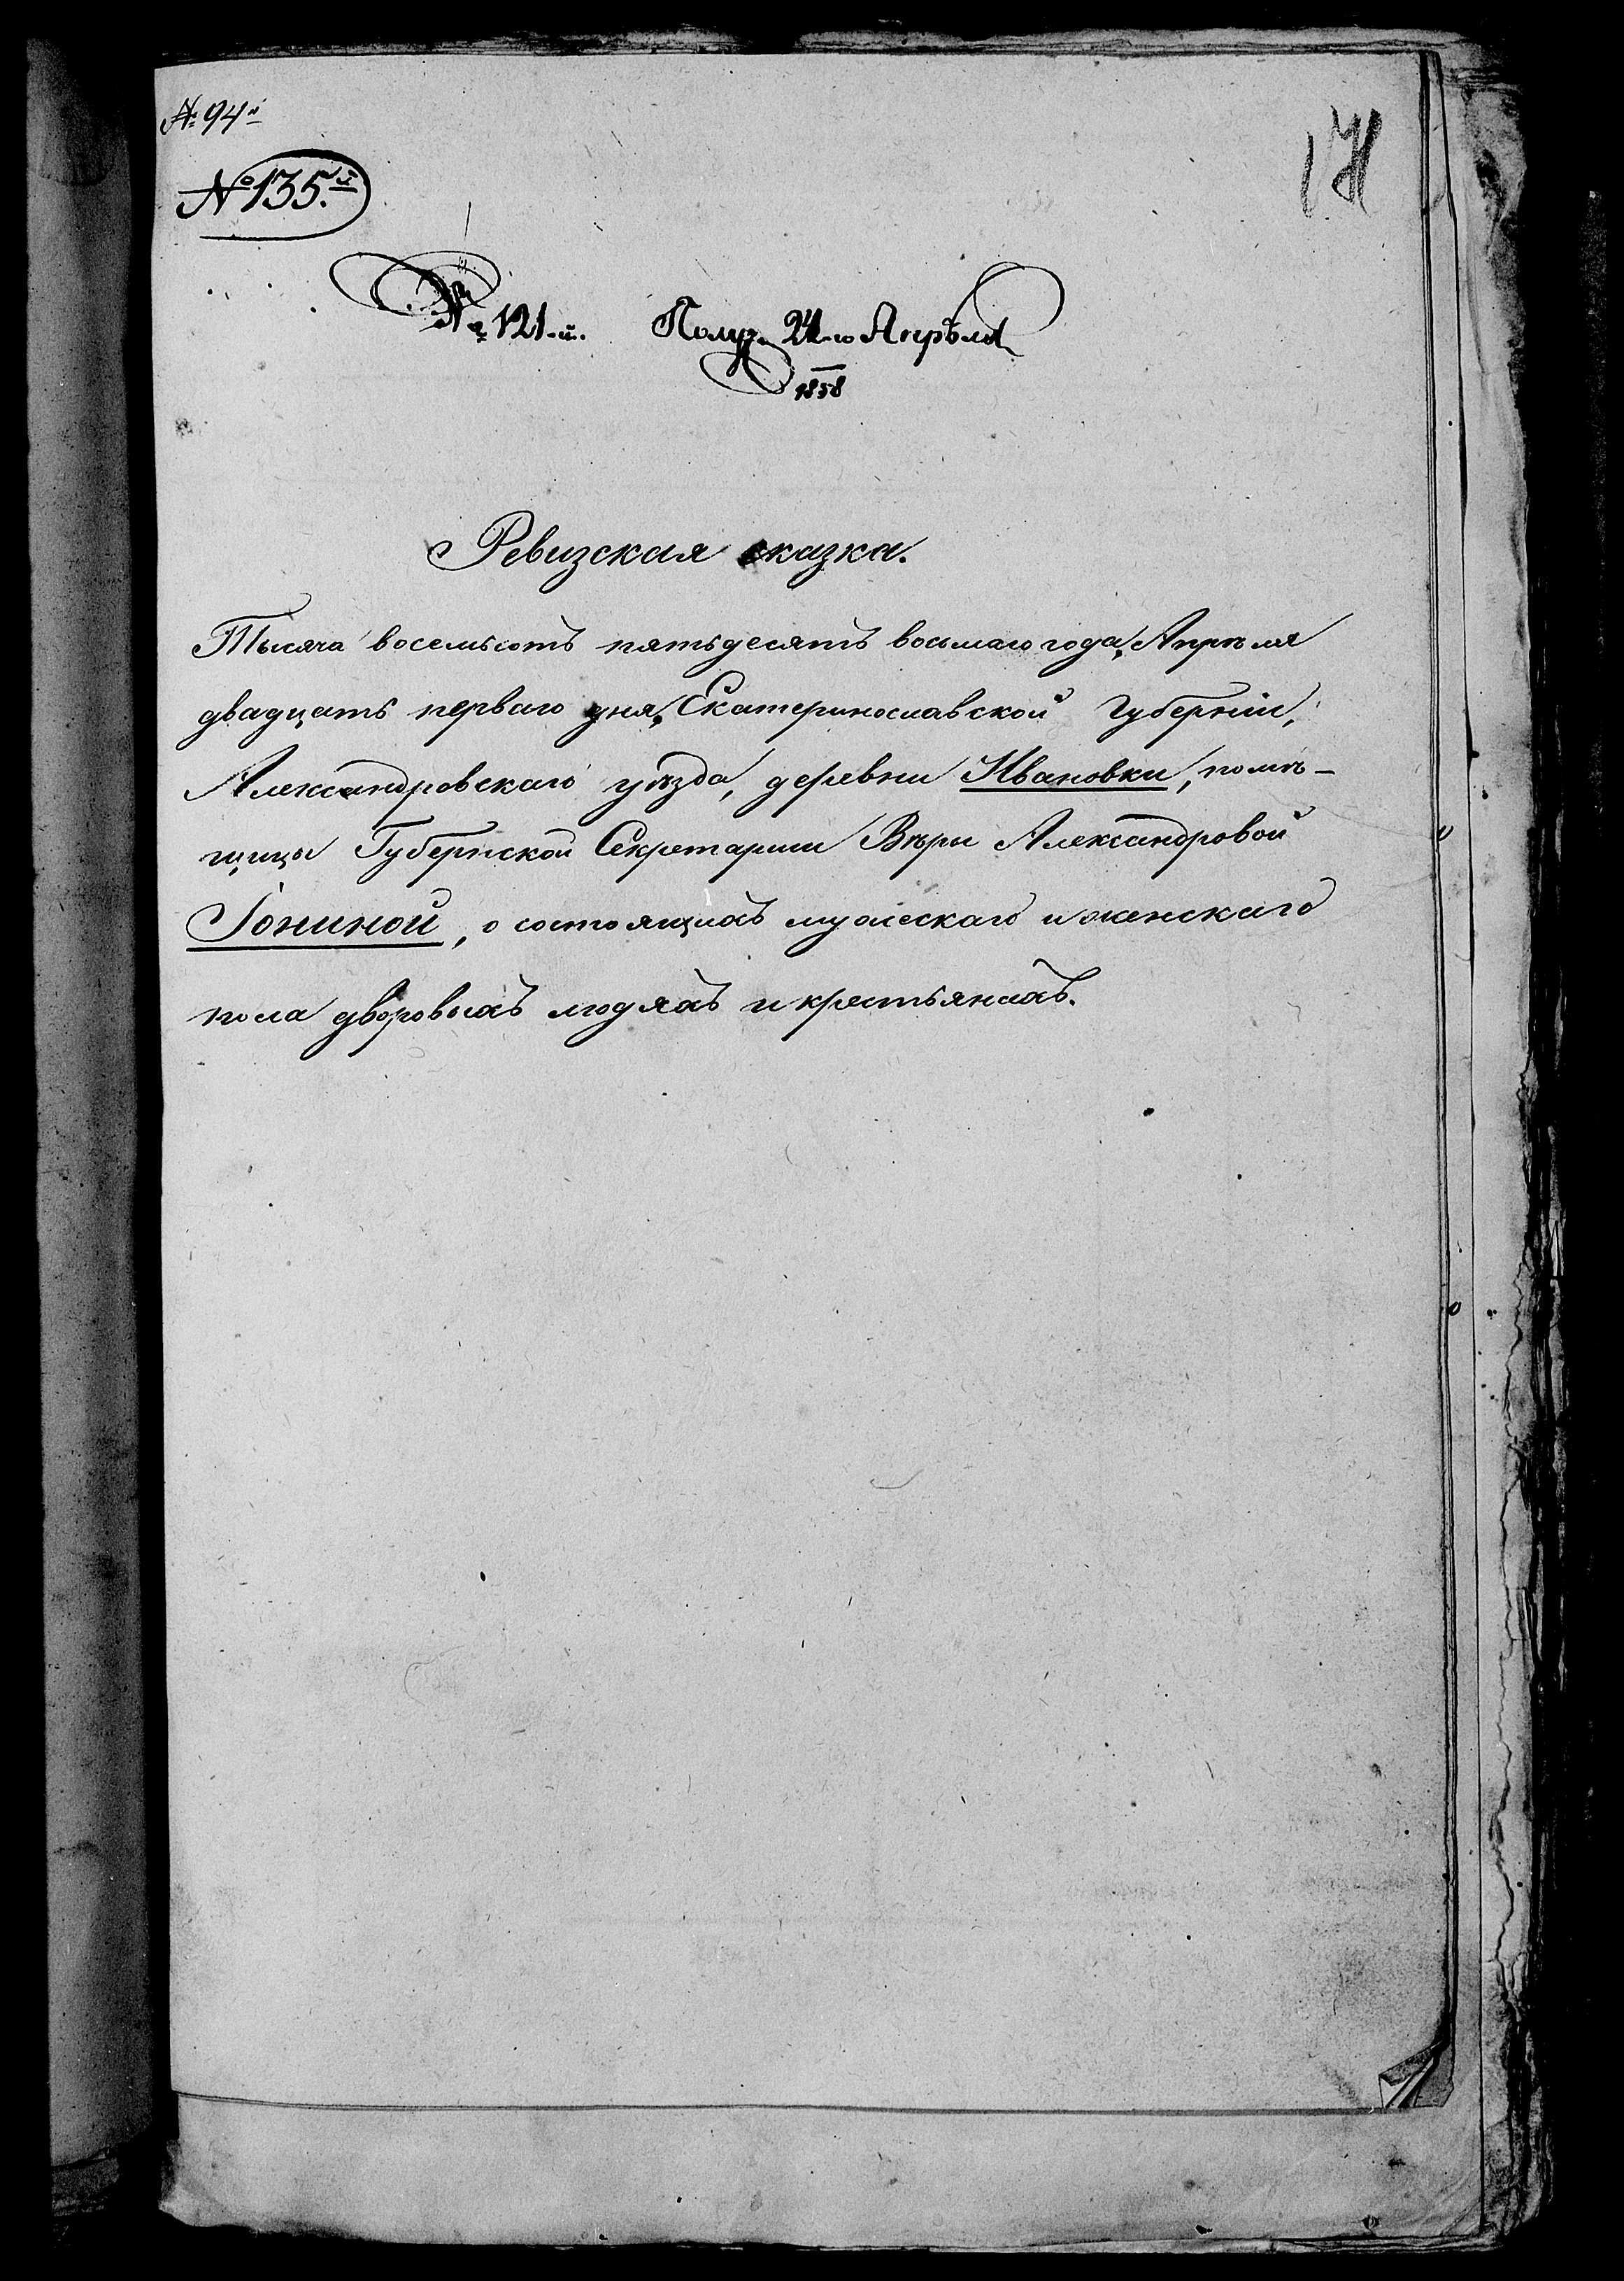 № 94й
№ 135.й
№ 121-й. Получ. 24-го Апрѣля
1858
Ревизская сказка.
Тысяча восемьсотъ пятьдесятъ восьмаго года, Апрѣля
двадцать перваго дня, Екатеринославской Губерніи,
Александровскаго уѣзда, деревни Ивановки, помѣ-
щицы Губернской Секретарши Вѣры Александровой
Гониной, о состоящихъ мужескаго и женскаго
пола дворовыхъ людяхъ и крестьянахъ.